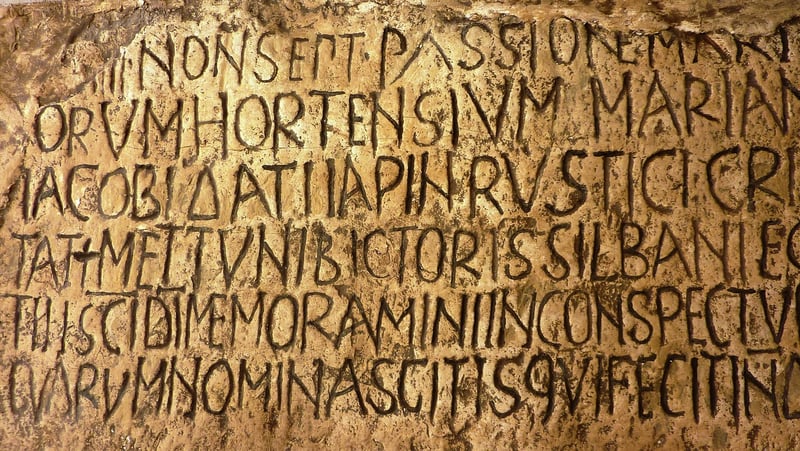 IIII NON SEPT · PASSIONE MART
ORVM HORTENSIVM MARIAN
IACOBI DATI IAPIN RVSTICI CRI
TAT + METTVNI BICTORIS SILBANI EG
TII SCI DI MEMORAMINI IN CONSPECTV
QVARVM NOMINA SCIT IS QVI FECIT IN